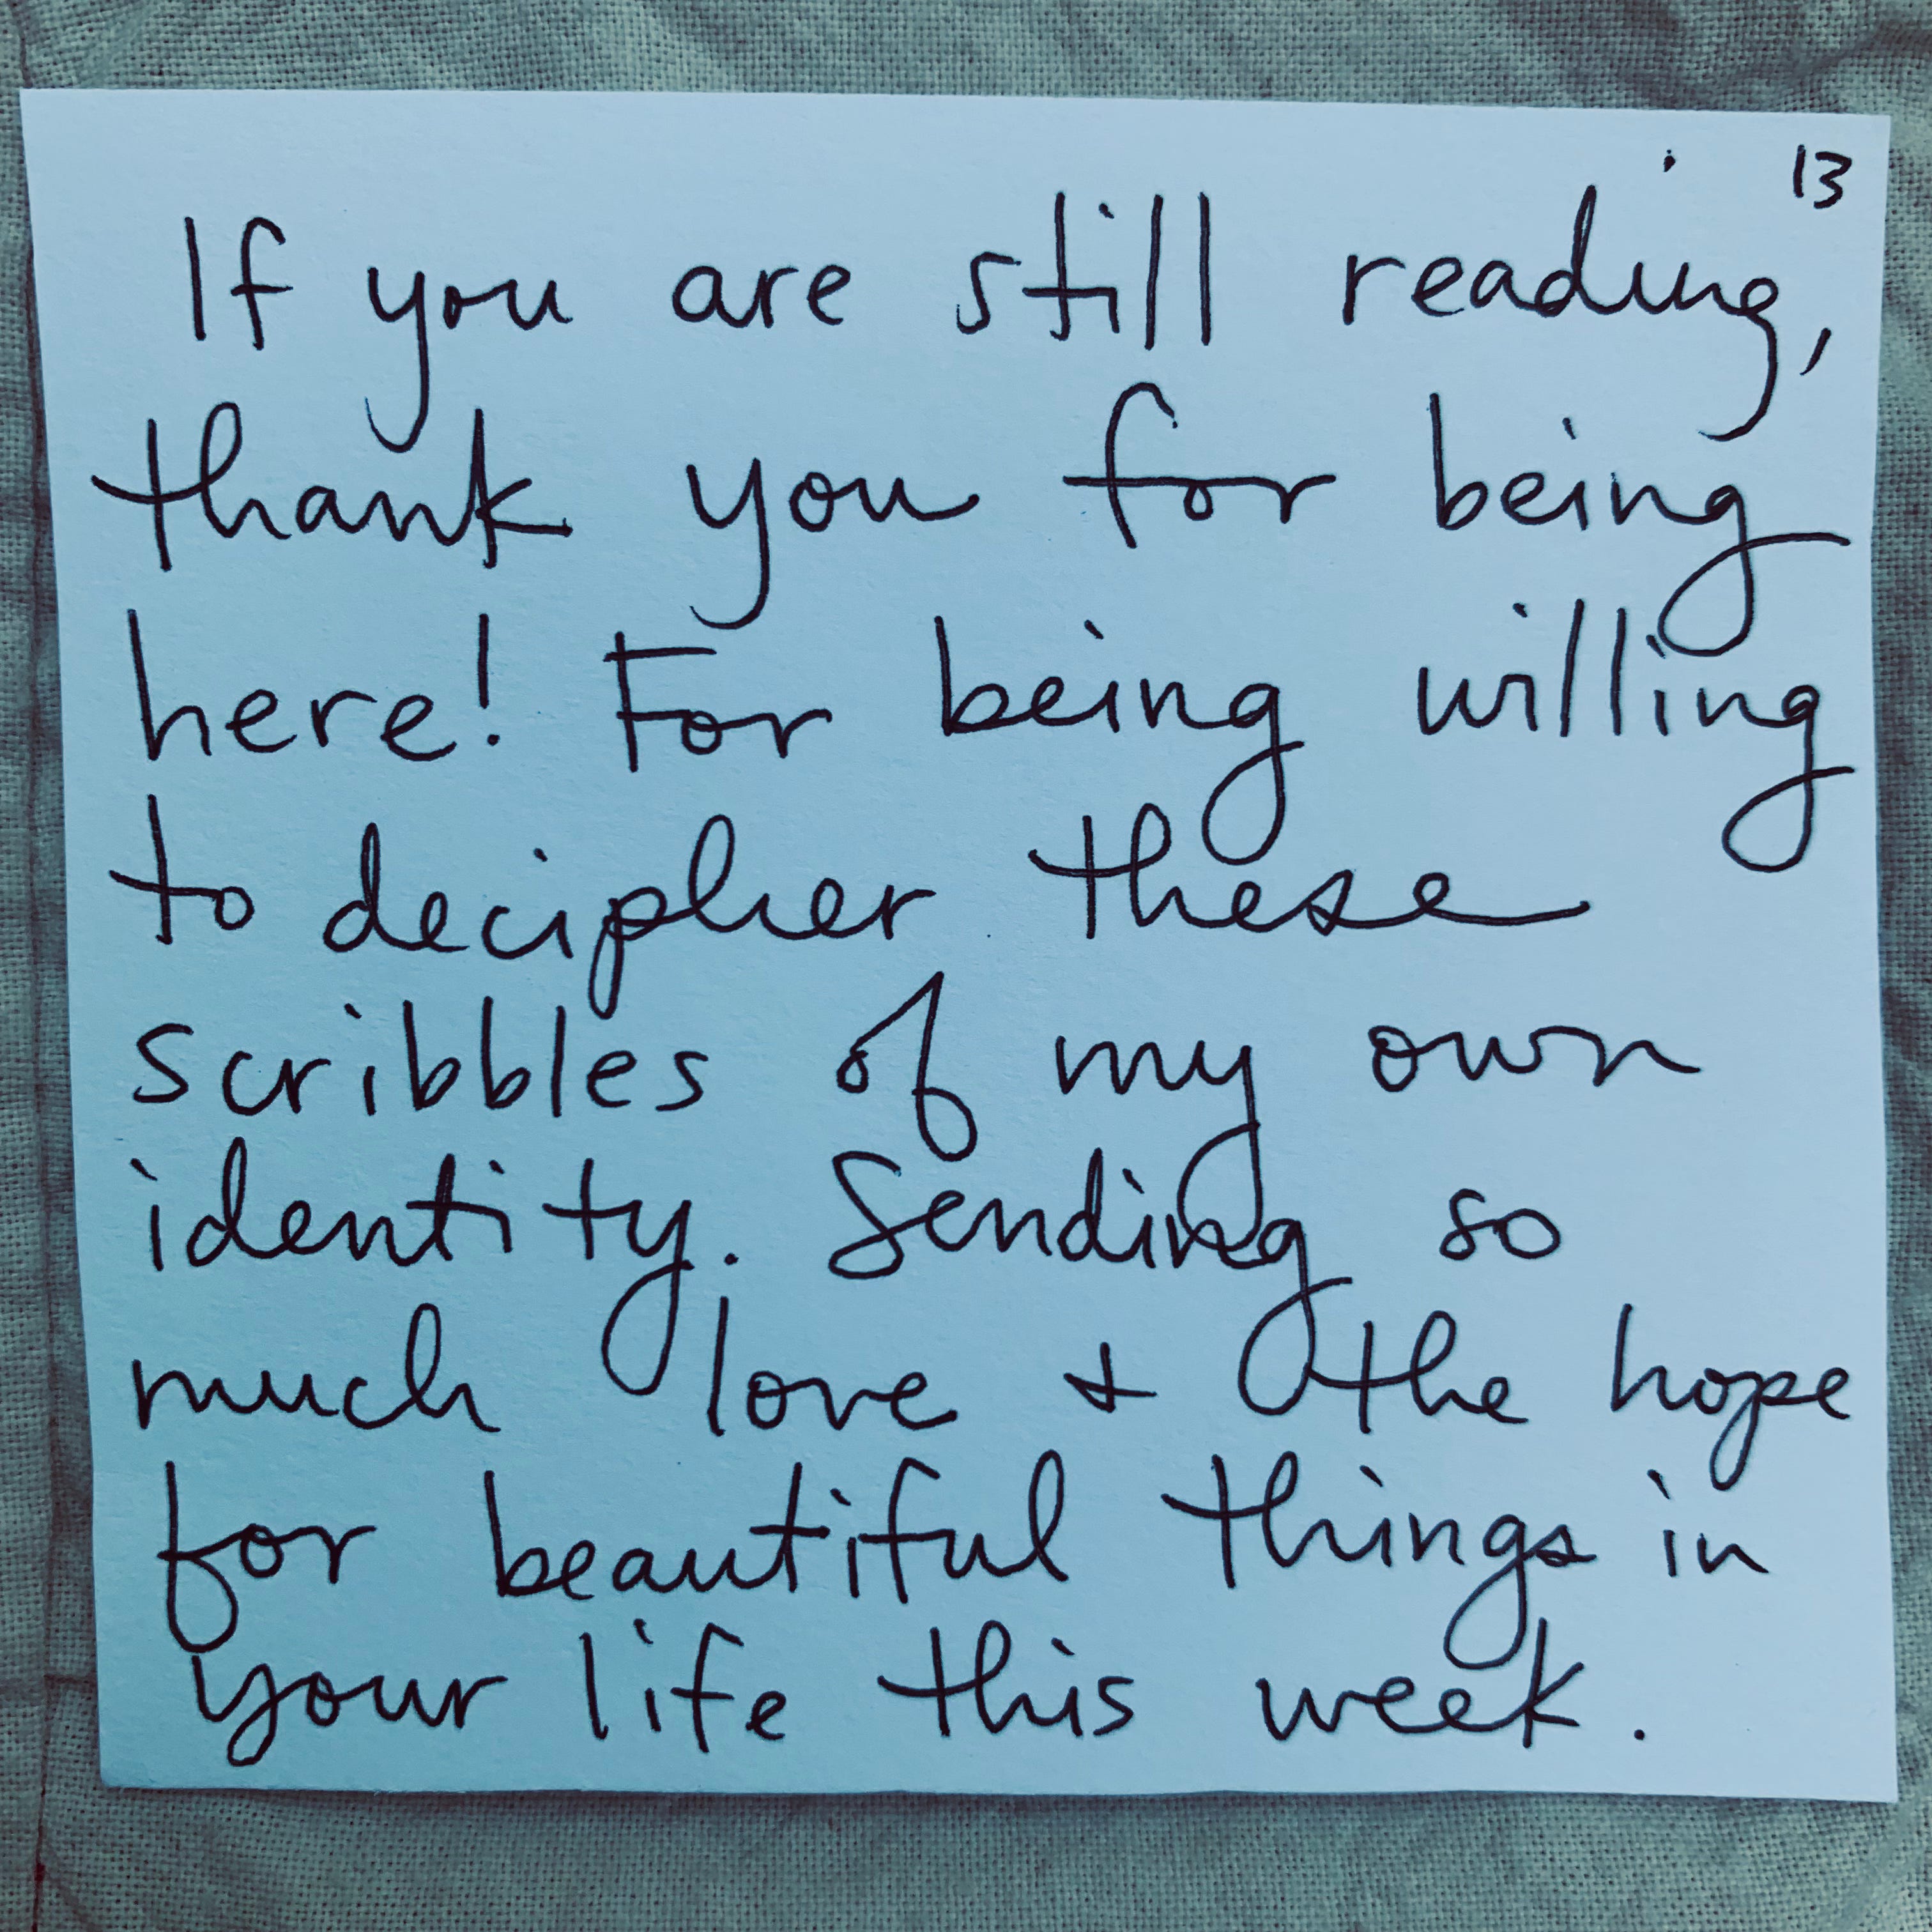 13
If you are still reading,
thank you for being
here! For being willing
to decipher these
scribbles of my own
identity. Sending so
much love + the hope
for beautiful things in
your life this week.